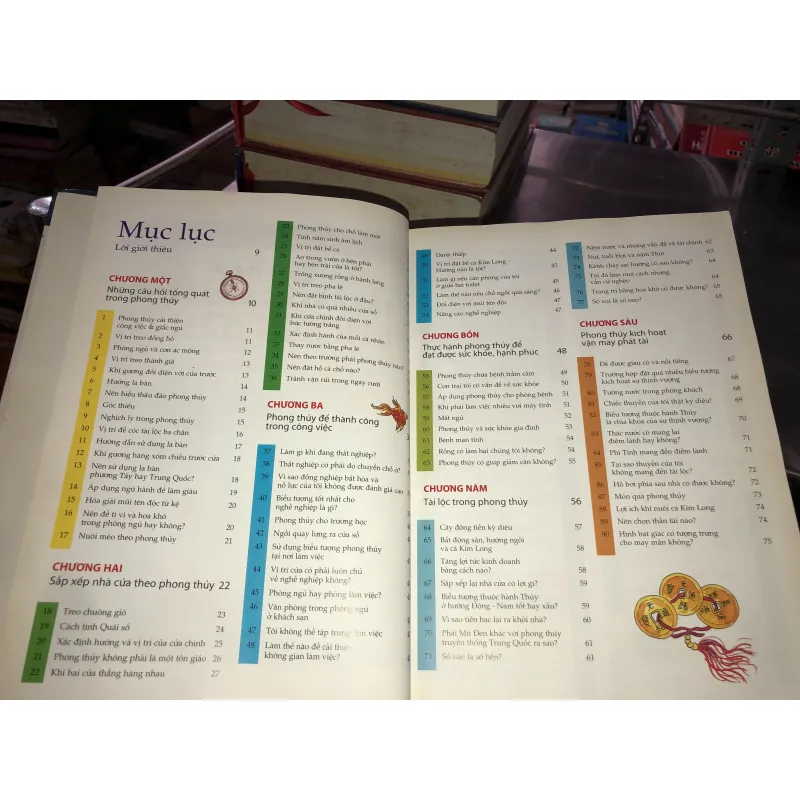 Mục lục
Lời giới thiệu 9
CHƯƠNG MỘT
Những câu hỏi tổng quát
trong phong thủy 10
1 Phong thủy cải thiện
công việc & giấc ngủ 11
2 Vị trí treo đồng hồ 11
3 Phong ngủ và cơn ác mộng 12
4 Vị trí treo thánh giá 13
5 Khi gương đối diện với cửa trước 13
6 Hướng la bàn 14
7 Nên biếu tháu đáo phong thủy 14
8 Góc thiếu 14
9 Nghịch lý trong phong thủy 15
10 Vị trí để cóc tài lộc ba chân 16
11 Hướng dẫn sử dụng la bàn 17
12 Khi gương hàng xóm chiếu trước cửa 18
13 Nên sử dụng la bàn
phương Tây hay Trung Quốc? 18
14 Áp dụng ngũ hành để làm giàu 19
15 Hóa giải mũi tên độc từ kệ 20
16 Nên để ti vi và hoa khô
trong phòng ngủ hay không? 20
17 Nuôi mèo theo phong thủy 21
CHƯƠNG HAI
Sắp xếp nhà cửa theo phong thủy 22
18 Treo chuông gió 23
19 Cách tính Quái số 24
20 Xác định hướng và vị trí của cửa chính 25
21 Phong thủy không phải là một tôn giáo 26
22 Khi hai cửa thẳng hàng nhau 27
23 Phong thủy cho chỗ làm mới
24 Tính năm sinh âm lịch
25 Vị trí đặt bể cá
26 Ao trong vườn ở bên phải
hay bên trái của là tốt?
Trồng xương rồng ở hành lang
Vị trí treo pha lê
Nên đặt bình tài lộc ở đâu?
30 Khi nhà có quá nhiều cửa sổ
31 Khi cửa chính đối diện với
bức tường trắng
32 Xác định hành của mỗi cá nhân
33 Thay nước bằng pha lê
34 Nên theo trường phái phong thủy nào?
35 Nên đặt hồ cá chỗ nào?
36 Tránh vận rủi trong ngày cưới
CHƯƠNG BA
Phong thủy để thành công
trong công việc
37 Làm gì khi đang thất nghiệp?
38 Thất nghiệp có phải do chuyển chỗ ở?
39 Vì sao đồng nghiệp bất hòa và
nỗ lực của tôi không được đánh giá cao
40 Biểu tượng tốt nhất cho
nghề nghiệp là gì?
41 Phong thủy cho trường học
42 Ngồi quay lưng ra cửa sổ
43 Sử dụng biểu tượng phong thủy
tại nơi làm việc
44 Vị trí cửa có phải luôn chủ
về nghề nghiệp không?
45 Phòng ngủ hay phòng làm việc?
46 Văn phòng trong phòng ngủ
ở khách sạn
47 Tôi không thể tập trung làm việc
48 Làm thế nào để cải thiện
không gian làm việc?
49 Danh thiếp 44
50 Vị trí đặt bể cá Kim Long -
Hướng nào là tốt? 45
51 Làm gì nếu căn phòng của tôi
ở giữa hai toilet 45
52 Làm thế nào nếu chỗ ngồi quá sáng? 46
53 Đối diện với mũi tên độc 47
54 Nâng cao nghề nghiệp 47
CHƯƠNG BỐN
Thực hành phong thủy để
đạt được sức khỏe, hạnh phúc 48
55 Phong thủy chữa bệnh trầm cảm 49
56 Con trai tôi có vấn đề về sức khỏe 50
57 Áp dụng phong thủy cho phòng bệnh 51
58 Khi phải làm việc nhiều với máy tính 51
59 Mất ngủ 52
60 Phong thủy và sức khỏe gia đình 53
61 Bệnh mạn tính 54
62 Rồng có làm hại chúng tôi không? 54
63 Phong thủy có giúp giảm cân không? 55
CHƯƠNG NĂM
Tài lộc trong phong thủy 56
64 Cây đồng tiền kỳ diệu 57
65 Bất động sản, hướng ngồi
và cá Kim Long 58
66 Tăng lợi tức kinh doanh
bằng cách nào? 58
67 Sắp xếp lại nhà cửa có lợi gì? 59
68 Biểu tượng thuộc hành Thủy
ở hướng Đông - Nam tốt hay xấu? 59
69 Vì sao tiền bạc lại ra khỏi nhà? 60
70 Phái Mũ Đen khác với phong thủy
truyền thống Trung Quốc ra sao? 61
71 Số nào là số hên? 61
72 Ném nước và những vấn đề về tài chính 62
73 Núi, tuổi Hợi và năm Thìn 63
74 Kênh chảy sai hướng có sao không? 64
75 Tôi đã làm mọi cách nhưng
vẫn cơ nghèo 64
76 Trang trí bằng hoa khô có được không? 65
77 Số xui là số nào? 65
CHƯƠNG SÁU
Phong thủy kích hoạt
vận may phát tài 66
78 Để được giàu có và nổi tiếng 67
79 Trường hợp đặt quá nhiều biểu tượng
kích hoạt sự thịnh vượng 68
80 Tường nước trong phòng khách 68
81 Chiếc thuyền của tôi thật kỳ diệu! 69
82 Biểu tượng thuộc hành Thủy
là chìa khóa của sự thịnh vượng? 70
83 Thác nước có mang lại
điềm lành hay không? 71
84 Phi Tinh mang đến điềm lành 71
85 Tại sao thuyền của tôi
không mang đến tài lộc? 72
86 Hồ bơi phía sau nhà có được không? 72
87 Món quà phong thủy 73
88 Lợi ích khi nuôi cá Kim Long 74
89 Nên chọn thần tài nào? 74
90 Hình bát giác có tượng trưng
cho may mắn không? 75